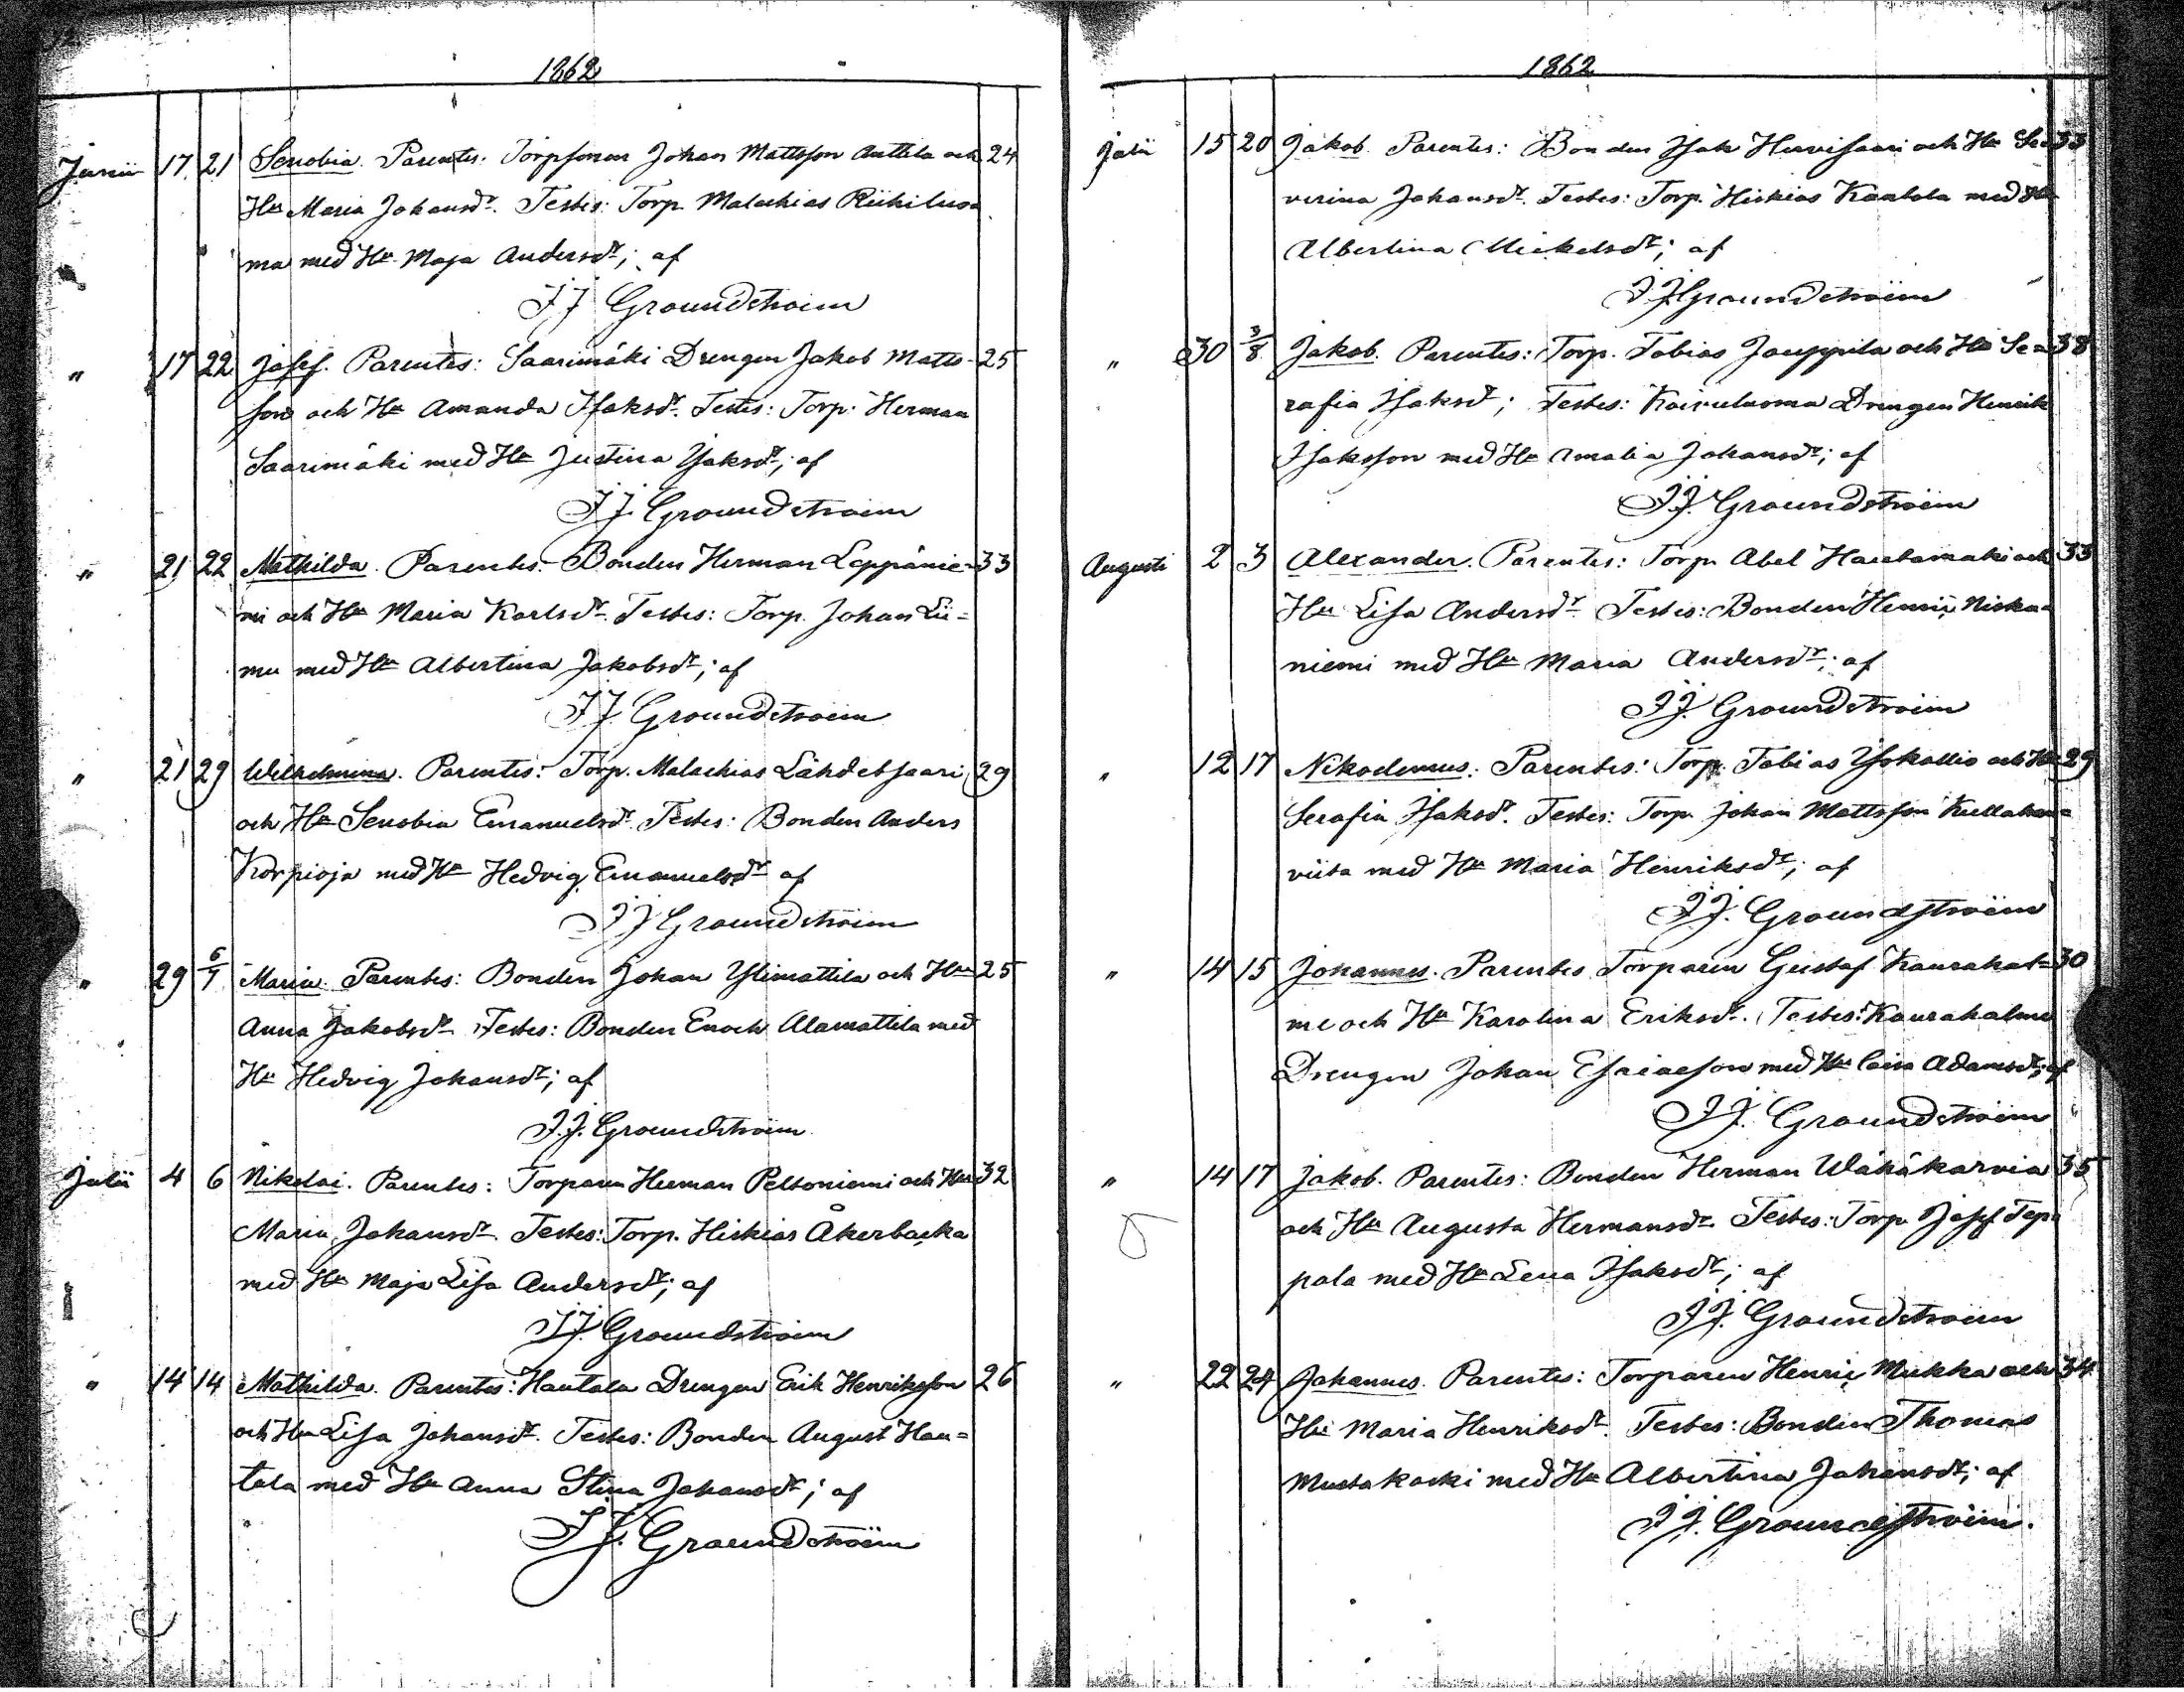 1862
Junii 17 21 Senobia. Parentes: Torpsonen Johan Mattsson Anttila och 24
Hu Maria Johansdr. Testes: Torp. Malachias Riihiluo
ma med Hu Maja Andersdr; af
J J Groundstroëm
" 17 22 Josef. Parentes: Saarimäki Drengen Jakob Matts- 25
son och Hu Amanda Isaksdr. Testes: Torp. Herman
Saarimäki med Hu Justina Isaksdr; af
J J. Groundstroëm
" 21 22 Mathilda. Parentes: Bonden Herman Leppänie- 33
mi och Hu Maria Karlsdr. Testes: Torp. Johan Lii=
mu med Hu Albertina Jakobsdr; af
J J. Groundstroëm
" 21 29 Wilhelmina. Parentes: Torp. Malachias Lähdetsaari 29
och Hu Senobia Emanuelsdr. Testes: Bonden Anders
Korpioja med Hu Hedvig Emanuelsdr af
J J Groundstroëm
" 29 6/7 Maria. Parentes: Bonden Johan Ylimattila och Hu 25
Anna Jakobsdr. Testes: Bonden Enoch Alamattila med
Hu Hedvig Johansdr; af
J. J. Groundstroëm
Julii 4 6 Nikolai. Parentes: Torparen Herman Peltoniemi och Hu 32
Maria Johansdr. Testes: Torp. Hiskias Åkerbacka
med Hu Maja Lisa Andersdr; af
J J. Groundstroëm
" 14 14 Mathilda. Parentes: Hautala Drengen Erik Henriksson 26
och Hu Lisa Johansdr. Testes: Bonden August Hau=
tala med Hu Anna Stina Johansdr; af
J J. Groundstroëm
1862
Julii 15 20 Jakob. Parentes: Bonden Isak Hirvisaari och Hu Se= 33
verina Johansdr. Testes: Torp. Hiskias Kantola med Hu
Albertina Mickelsdr; af
J J Groundstroëm
" 30 3/8 Jakob. Parentes: Torp. Tobias Jouppila och Hu Se= 38
rafia Isaksdr; Testes: Koivuluoma Drengen Henrik
Isaksson med Hu Amalia Johansdr; af
J J. Groundstroëm
Augusti 2 3 Alexander. Parentes: Torp. Abel Hautamäki och 33
Hu Lisa Andersdr. Testes: Bonden Henric Niska=
niemi med Hu Maria Andersdr; af
J J. Groundstroëm
" 12 17 Nikodemus. Parentes: Torp. Tobias Isokallio och Hu 29
Serafia Isaksdr. Testes: Torp. Johan Mattsson
viita med Hu Maria Henriksdr; af
J J. Groundstroëm
" 14 15 Johannes. Parentes Torparen Gustaf Kaurahal= 30
me och Hu Karolina Eriksdr. Testes: Kaurahalme
Drengen Johan Esaiasson med Hu Caisa Adamsdr; af
J J. Groundstroëm
" 14 17 Jakob. Parentes: Bonden Herman Wähäkarvia 35
och Hu Augusta Hermansdr. Testes: Torp. Josef Tep=
pola med Hu Lena Isaksdr; af
J J. Groundstroëm
" 22 24 Johannes. Parentes: Torparen Henric Mukka och 34
Hu Maria Henriksdr. Testes: Bonden Thomas
Mustakoski med Hu Albertina Johansdr; af
J J. Groundstroëm.